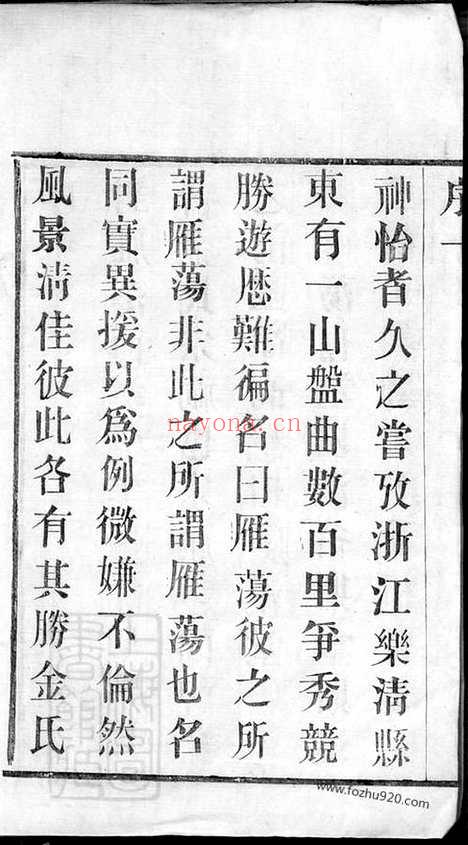 序一
神怡者久之嘗攷浙江樂清縣
東有一山盤曲數百里爭秀競
勝遊歷難徧名曰雁蕩彼之所
謂雁蕩非此之所謂雁蕩也名
同實異援以爲例微嫌不倫然
風景清佳彼此各有其勝金氏
nayona.cn
www.fozhu920.com